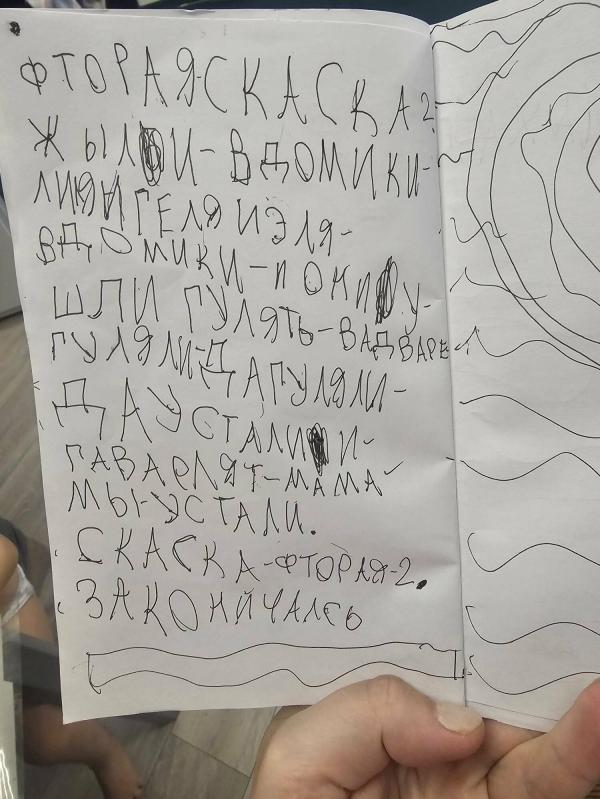 ФТОРАЯ-СКАСКА 2
ЖЫЛИ-ВДОМИКИ-
ЛИЯ АНГЕЛЯ ИЭЛЯ-
ВДОМИКИ-И ОНИ У-
ШЛИ ГУЛЯТЬ-ВАДВАРЕ-
ГУЛЯЛИ-Д
ДАГУЛЯЛИ-
ДАУСТАЛИ И-
ГАВАРЛЯТ-МАМА
МЫ-УСТАЛИ.
СКАСКА-ФТОРАЯ-2.
ЗАКОНЙЧАЛСЬ